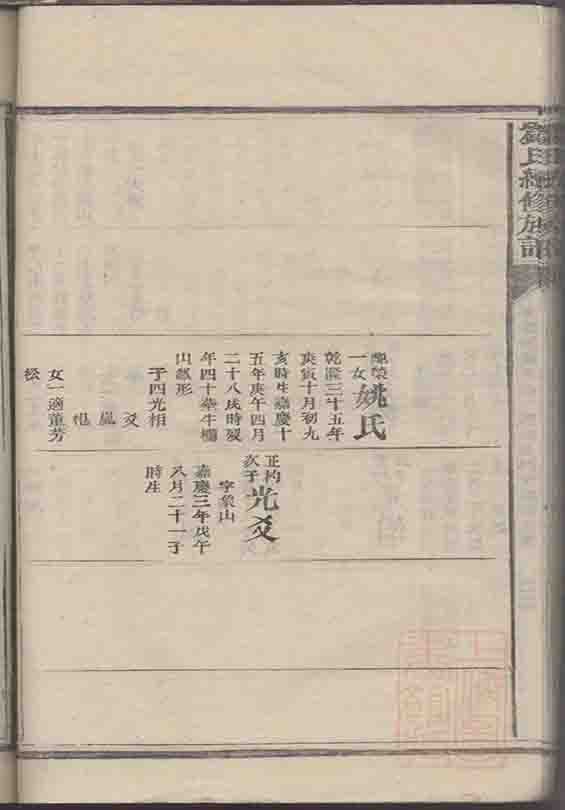 氏續修族譜
一女姚氏
乾隆三十五年
庚寅十月初九
亥時生嘉慶十
五年庚午四月
二十八戌時歿
年四十葬牛欄
山獅形
子四光相
爻
嵐
女一適董芳
松
正杓次子光爻
字象山
嘉慶三年戊午
八月二十一子
時生